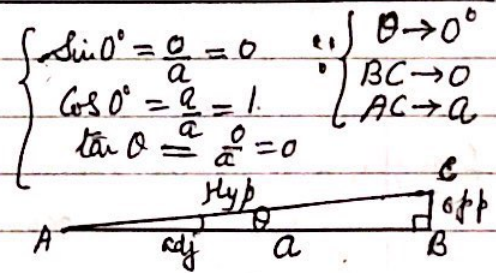 Sin0° = 0/a = 0
Cos0° = a/a = 1.
tan θ = 0/a = 0
∵ θ→0°
BC→0
AC→a
C
Hyp
opp
θ
A
adj
a
B